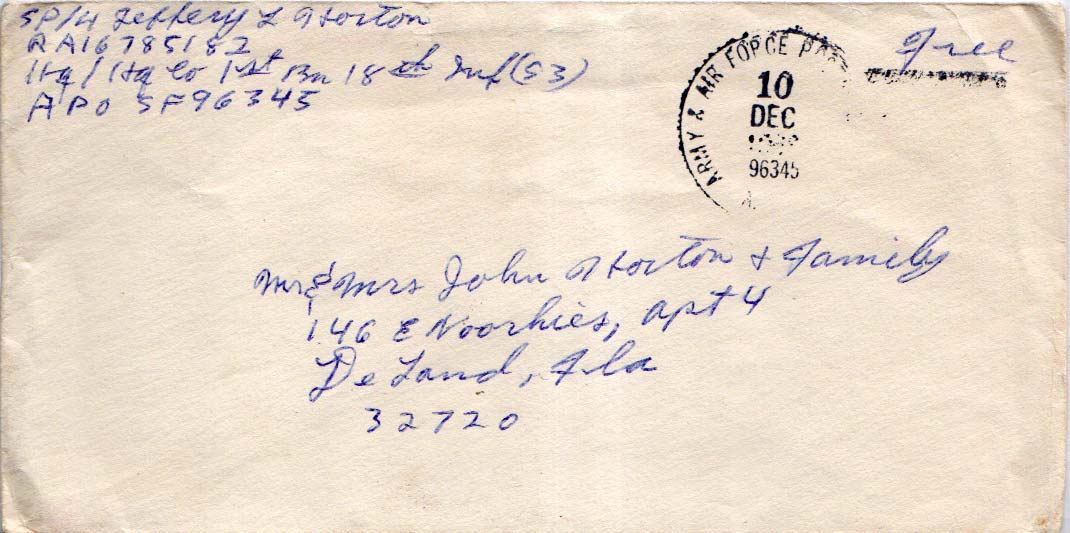 SP/4 Jeffery L Horton
RA16785182
Hq/Hq Co 1st Bn 18th Inf (S3)
APO SF96345
Free
ARMY & AIR FORCE
10
DEC
96345
Mr & Mrs John Horton & Family
146 E Voorhies, apt 4
DeLand, Fla
32720